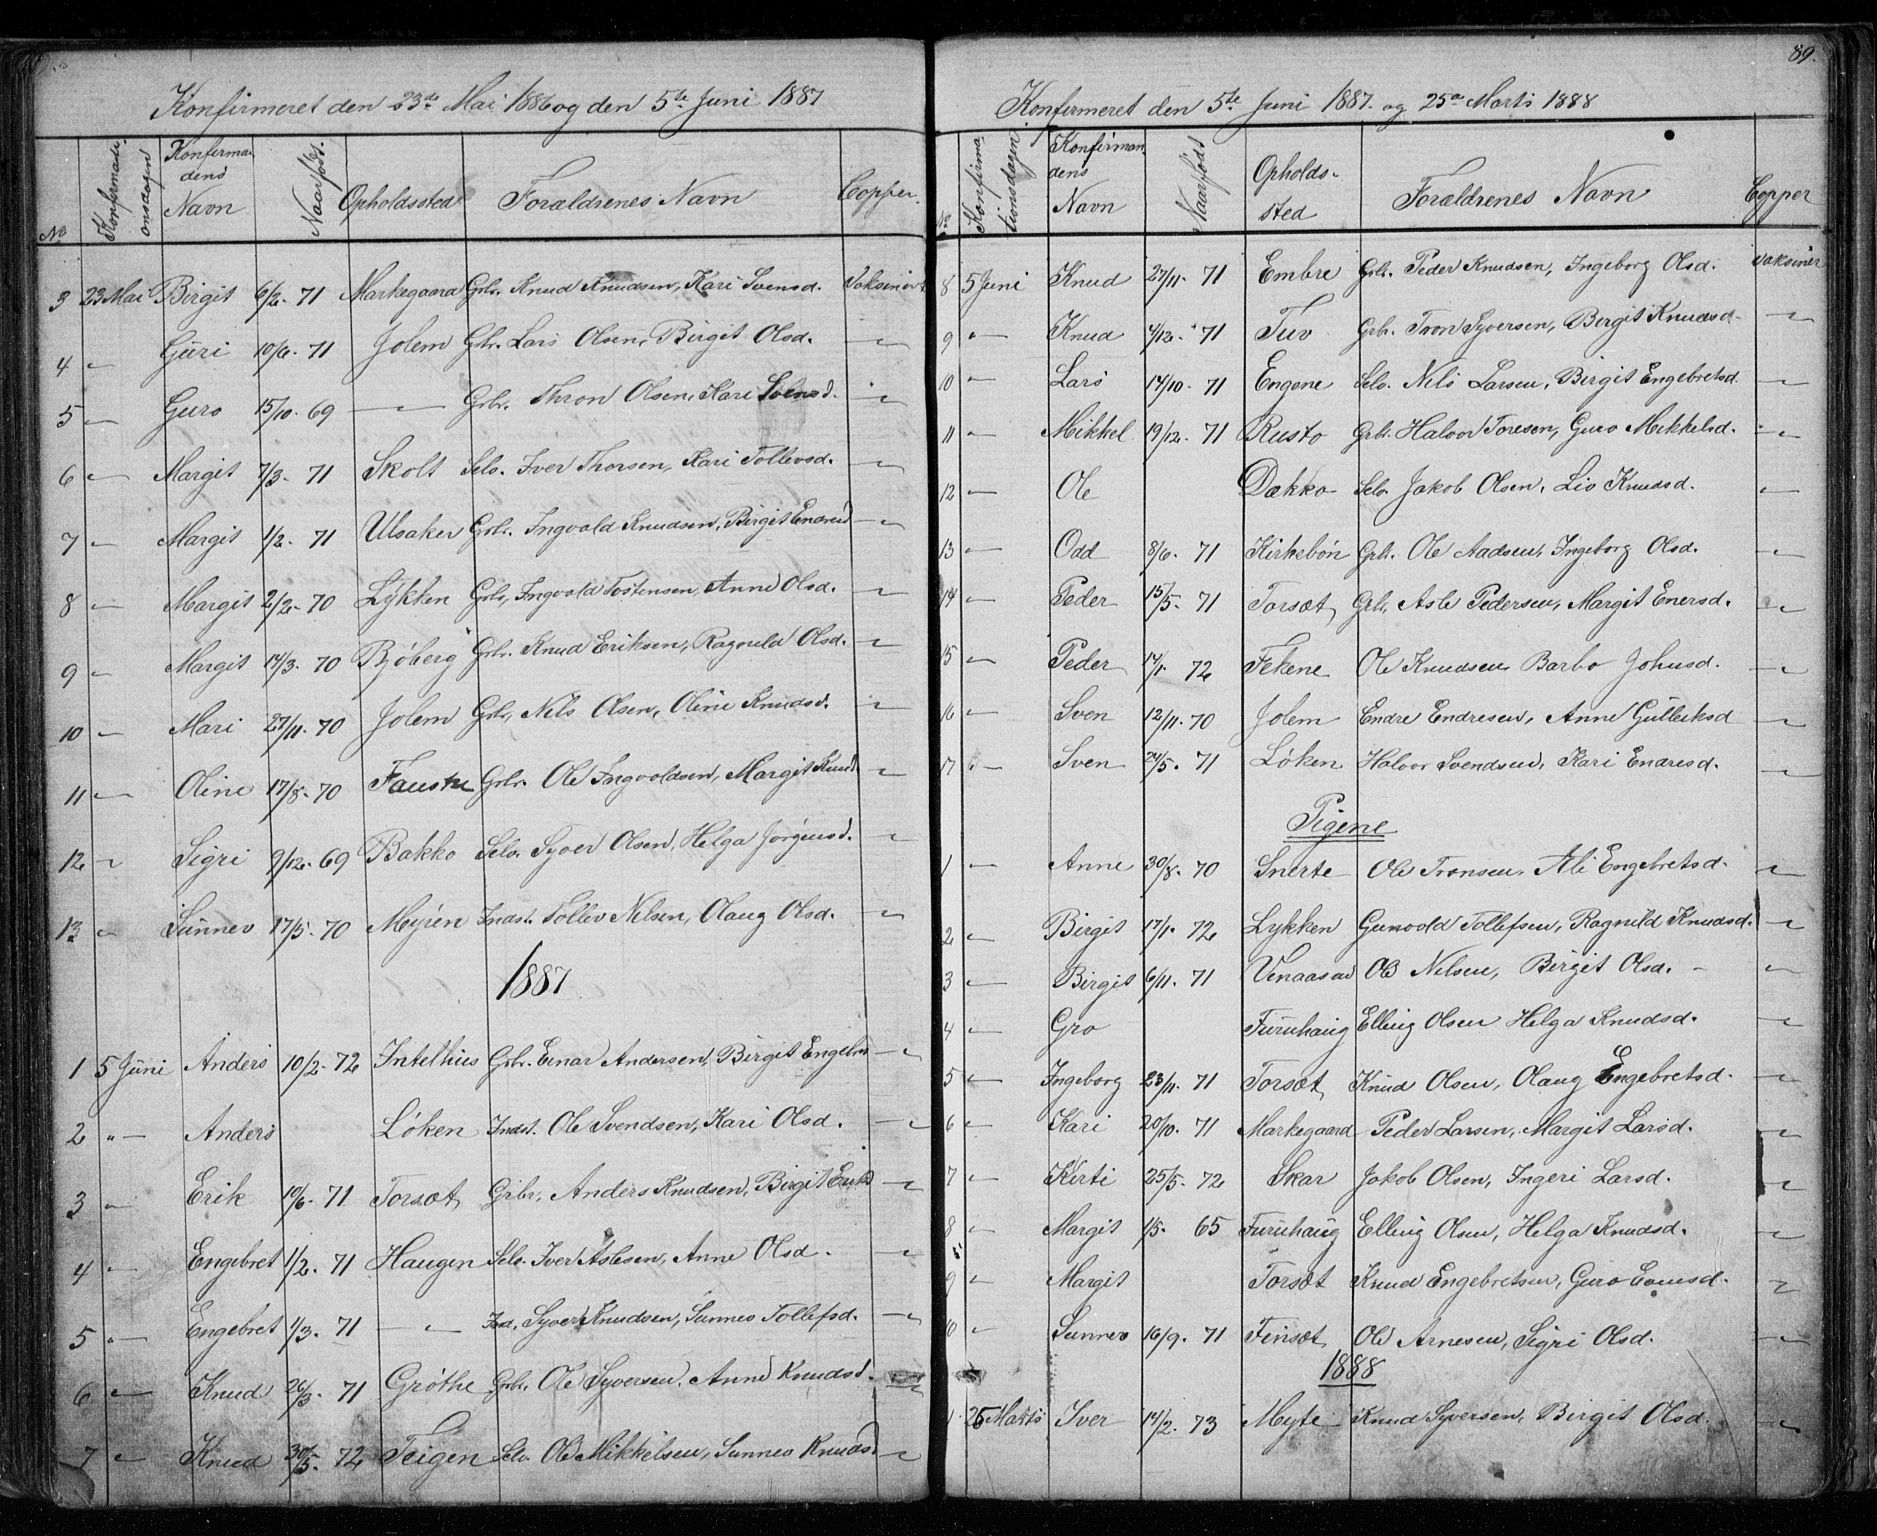 Konfirmeret den 23de Mai 1886 og den 5te Juni 1887
No Konfirmationsdagen Konfirmandens Navn Naarfødt. Opholdssted Forældrenes Navn Copper.
3 23 Mai Birgit 6/2. 71 Markegaard Grbr. Knud Knudsen, Kari Svensd. Vaksinert
4 〃 Guri 10/6. 71 Jolem Gbr. Lars Olsen, Birgit Olsd. 〃
5 〃 Guro 15/10. 69 〃 Grbr. Thron Olsen, Kari Svensd. 〃
6 〃 Margit 7/3. 71 Skolt Selv. Iver Thorsen, Kari Tollevsd. 〃
7 〃 Margit 1/2. 71 Ulsaker Grbr. Ingvald Knudsen, Birgit 〃
8 〃 Margit 2/2. 70 Lykken Grbr, Ingvald Tostensen, Anne Olsd. 〃
9 〃 Margit 14/3. 70 Bjøberg Grbr. Knud Eriksen, Ragnild Olsd. 〃
10 〃 Mari 27/11. 70 Jolem Grbr, Nels Olsen, Oline Knudsd. 〃
11 〃 Oline 17/8. 70 Grbr. Ole Ingvoldsen, Margit Knud 〃
12 〃 Sigri 9/12. 69 Bakko Selv. Syver Olsen, Helga Jørgensd. 〃
13 〃 Sunnev 17/5. 70 Meyien Indst. Tollev Nilsen, Olaug Olsd. 〃
1887
1 5 Juni Anders 10/2. 72 Intelhus Grbr. Einar Andersen, Birgit Engebr 〃
2 〃 Anders Løken Indst. Ole Svendsen, Kari Olsd. 〃
3 〃 Erik 10/6. 71 Torsæt Grbr. Anders Knudsen, Birgit Eriksd 〃
4 〃 Engebret 1/2. 71 Haugen Selv. Iver Aslesen, Anne Olsd. 〃
5 〃 Engebret 1/3. 71 〃 Ind. Syver Knudsen, Sunnev Tollefsd. 〃
6 〃 Knud 26/3. 71 Grøthe Grbr. Ole Syversen, Anne Knudsd. 〃
7 〃 Knud 30/5. 72 Teigen Selv. Ole Mikkelsen, Sunnev Knuds. 〃
89.
Konfirmeret den 5te Juni 1887. og 25de Marts 1888
No Konfirmationsdagen Konfirmandens Navn Naarfødt Opholdssted Forældrenes Navn Copper
8 5 Juni Knud 27/11. 71 Embre Grbr. Peder Knudsen, Ingeborg Olsd. Vaksiner
9 〃 Knud 4/12. 71 Tuv Grbr. Tron Syversen, Birgit Knudsd. 〃
10 〃 Lars 14/10. 71 Engene Selv. Nils Larsen, Birgit Engebretsd. 〃
11 〃 Mikkel 19/12. 71 Rusto Grbr. Halvor Toresen, Guro Mikkelsd. 〃
12 〃 Ole Dækko Selv Jakob Olsen, Liv Knudsd. 〃
13 〃 Odd 8/6. 71 Kirkebøn Grbr. Ole Aadsen, Ingeborg Olsd. 〃
14 〃 Peder 15/5. 71 Torsæt Grbr, Asle Pedersen, Margit Enersd. 〃
15 〃 Peder 14/1 72 Fekene Ole Knudsen Barbo Johnsd. 〃
16 〃 Sven 12/11. 70 Jolem Endre Endresen, Anne Gulleiksd 〃
17 〃 Sven 24/5. 71 Løken Halvor Svendsen, Kari Endresd. 〃
Pigene
1 〃 Anne 30/8. 70 Snerte Ole Tronsen, Ali Engebretsd. 〃
2 〃 Birgit 17/1. 72 Lykken Gunvold Tollefsen, Ragnild Knudsd. 〃
3 〃 Birgit 6/11. 71 Venaasad Ole Nilsen, Birgit Olsd. 〃
4 〃 Gro Furuhaug Elling Olsen Helga Knudsd. 〃
5 〃 Ingeborg 23/11. 71 Torsæt Knud Olsen, Olaug Engebretsd. 〃
6 〃 Kari 20/10. 71 Markegaard Peder Larsen, Margit Larsd. 〃
7 〃 Kirti 25/5. 72 Skar Jakob Olsen, Ingeri Larsd. 〃
8 〃 Margit 1/5. 65 Furuhaug Elling Olsen, Helga Knudsd. 〃
9 〃 Margit Torsæt Knud Engebretsen, Guro 〃
10 〃 Sunnev 16/9. 71 Finsæt Ole Arnesen, Sigri Olsd. 〃
1888
1 25 Marts Iver 14/2. 73 Myte Knud Syversen, Birgit Olsd. 〃